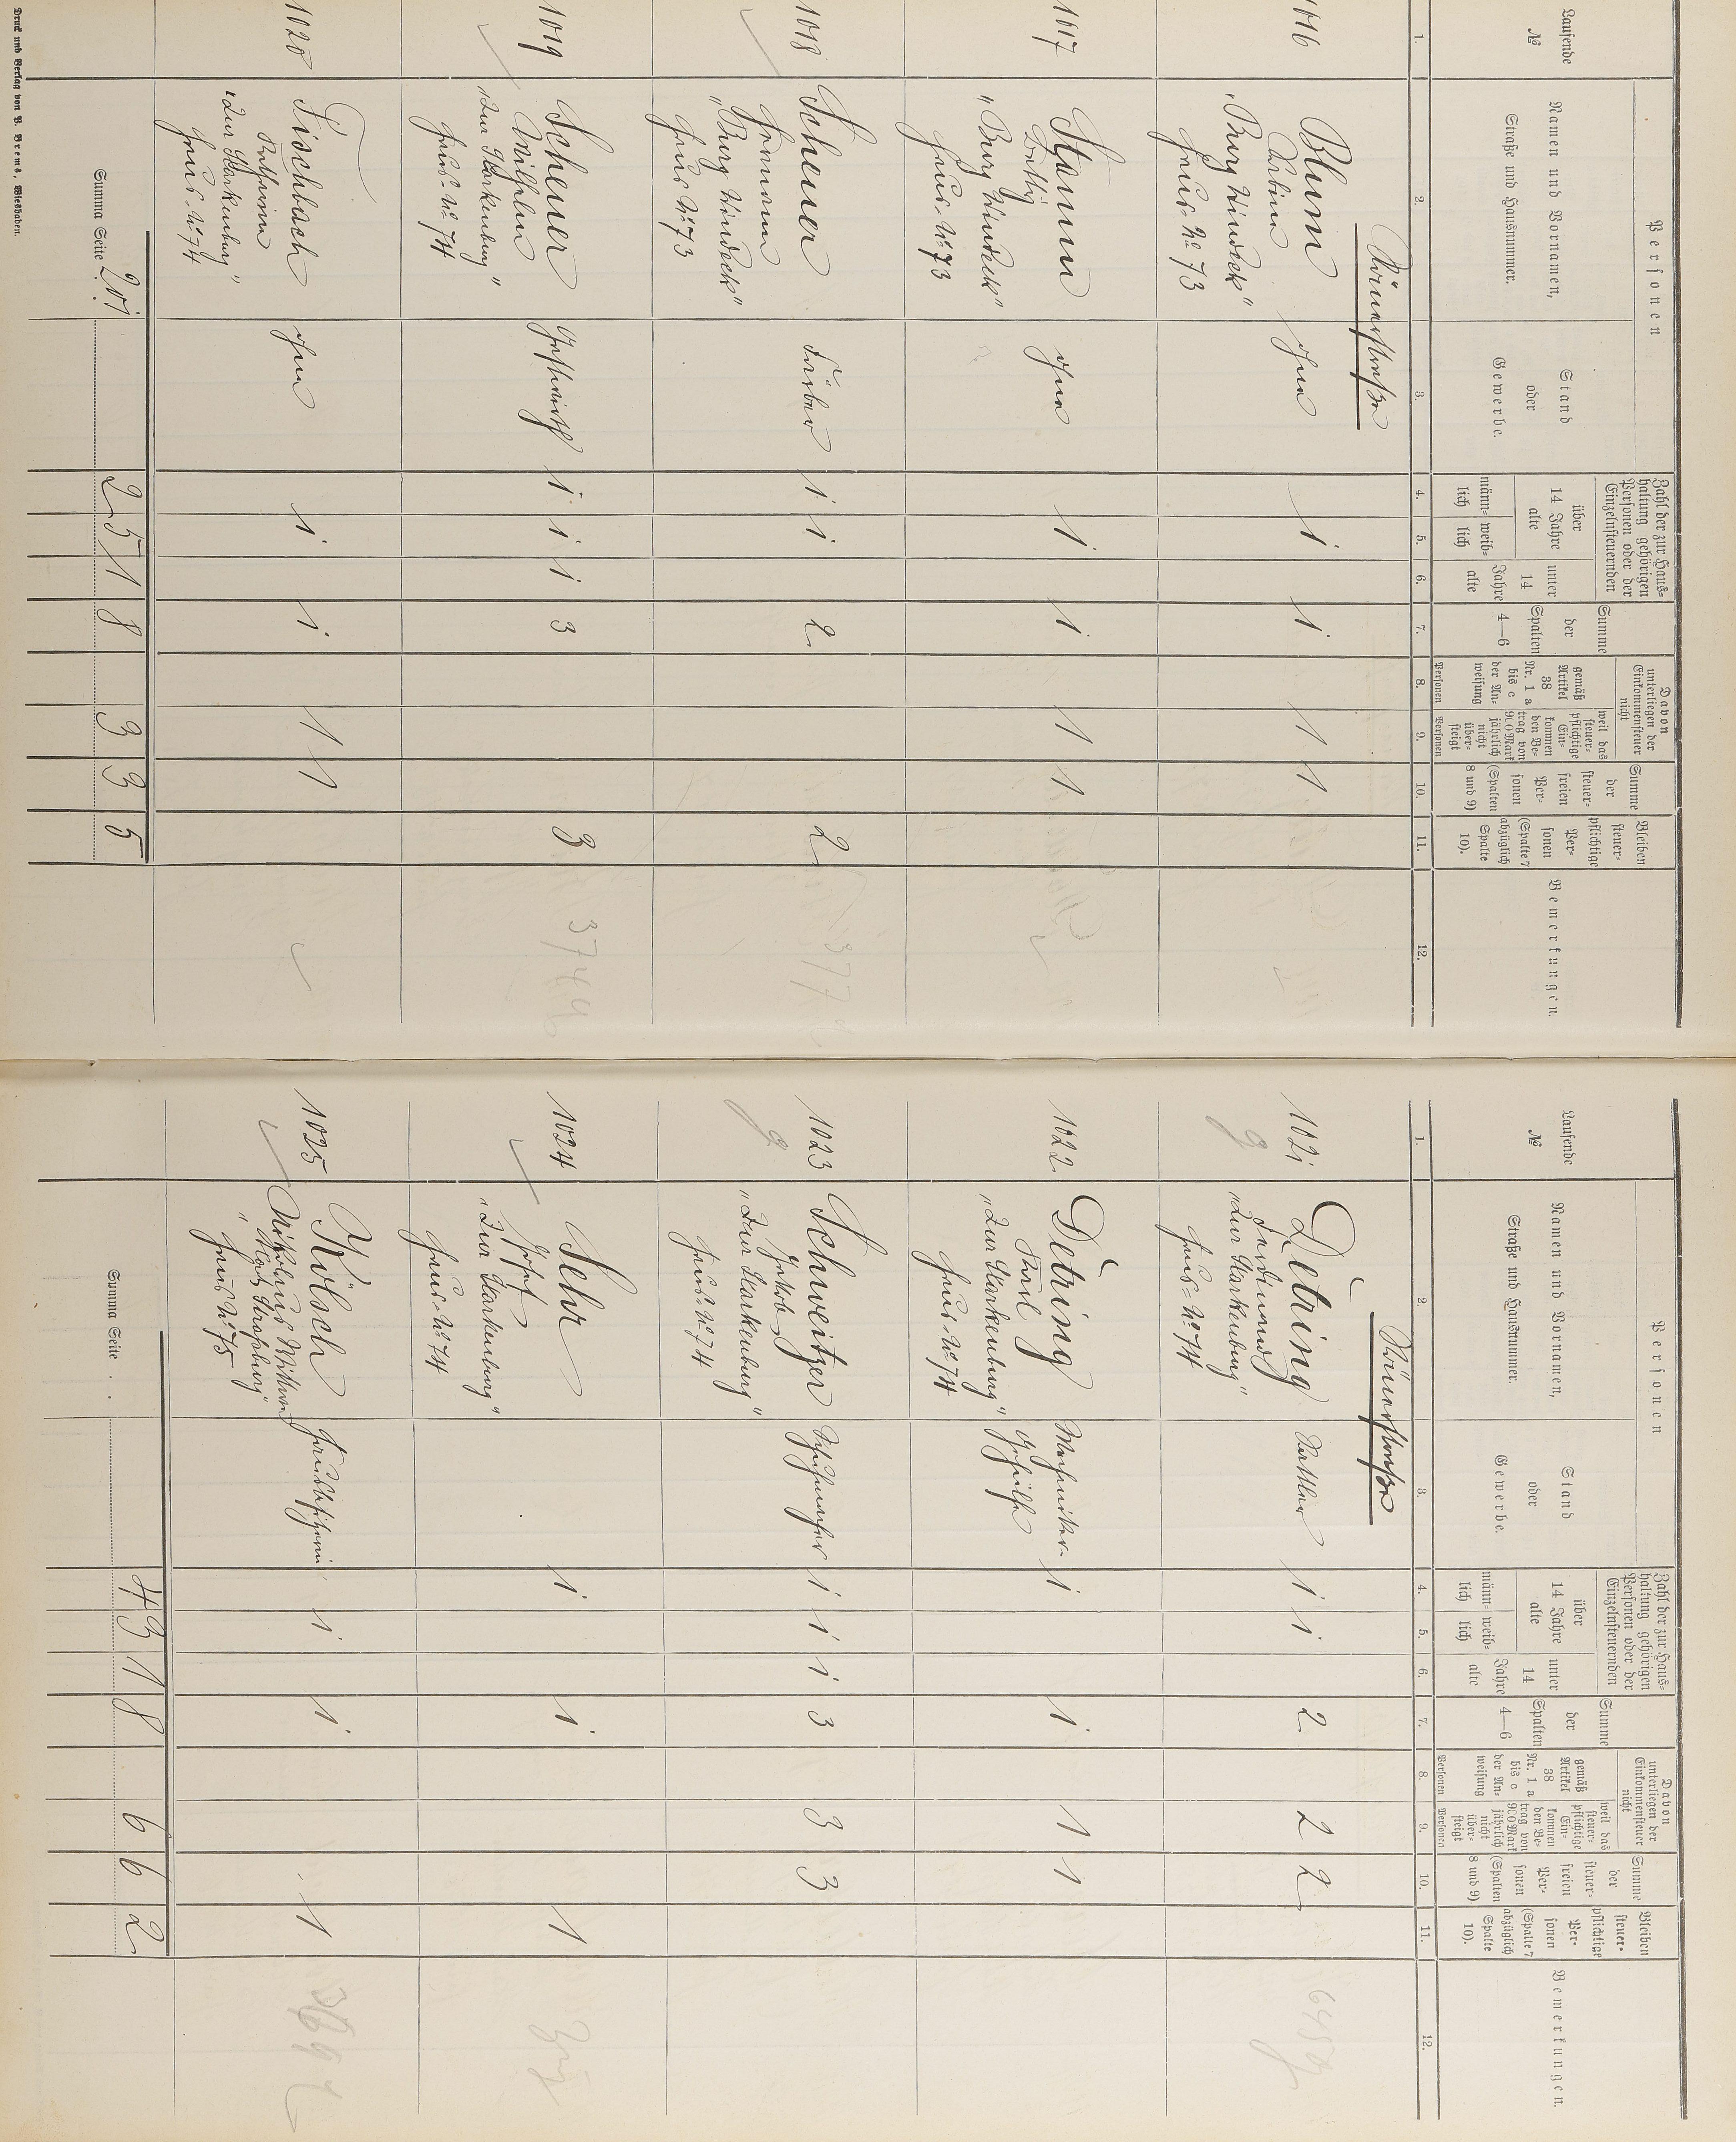 Personen
Zahl der zur Haus-
haltung gehörigen
Personen oder der
Einzelnsteuernden
Davon
unterliegen der
Einkommensteuer
nicht
Laufende
№
Namen und Vornamen,
Straße und Hausnummer.
Stand
oder
Gewerbe.
über
14 Jahre
alte
männ-
lich
weib-
lich
unter
14
Jahre
alte
Summe
der
Spalten
4—6
gemäß
Artikel
38
Nr. 1 a
bis c
der An-
weisung
Personen
weil das
steuer-
pflichtige
Ein-
kommen
den Be-
trag von
900 Mark
jährlich
nicht
über-
steigt
Personen
Summe
der
steuer-
freien
Per-
sonen
(Spalten
8 und 9)
Bleiben
steuer-
pflichtige
Per-
sonen
(Spalte 7
abzüglich
Spalte
10).
Bemerkungen.
1. 2. 3. 4. 5. 6. 7. 8. 9. 10. 11. 12.
1016 Blum ohne 1 1 1 1
"Burg Windeck"
Haus-No 73
1017 Stamm ohne 1 1 1 1
"Burg Windeck"
Haus-No 73
1018 Scheuer Färber 1 1 2 2
Hermann
"Burg Windeck"
Haus No 73
1019 Scheuer 1 1 1 3 3
Wilhelm
"Zur Starkenburg"
Haus-No 74
1020 Fischbach ohne 1 1 1 1
Katharina
"Zur Starkenburg"
Haus-No 74
Summa Seite 201 2 5 1 8 3 3 5
Druck und Verlag von P. Brems, Wiesbaden.
Personen
Zahl der zur Haus-
haltung gehörigen
Personen oder der
Einzelnsteuernden
Davon
unterliegen der
Einkommensteuer
nicht
Laufende
№
Namen und Vornamen,
Straße und Hausnummer.
Stand
oder
Gewerbe.
über
14 Jahre
alte
männ-
lich
weib-
lich
unter
14
Jahre
alte
Summe
der
Spalten
4—6
gemäß
Artikel
38
Nr. 1 a
bis c
der An-
weisung
Personen
weil das
steuer-
pflichtige
Ein-
kommen
den Be-
trag von
900 Mark
jährlich
nicht
über-
steigt
Personen
Summe
der
steuer-
freien
Per-
sonen
(Spalten
8 und 9)
Bleiben
steuer-
pflichtige
Per-
sonen
(Spalte 7
abzüglich
Spalte
10).
Bemerkungen.
1. 2. 3. 4. 5. 6. 7. 8. 9. 10. 11. 12.
1021 Detring Sattler 1 1 2 2 2
Ferdinand
"Zur Starkenburg"
Haus-No 74
1022 Detring Mechaniker- 1 1 1 1
Karl Gehilfe
"Zur Starkenburg"
Haus-No 74
1023 Schweitzer Schuhmacher 1 1 1 3 3 3
Jakob
"Zur Starkenburg"
Haus-No 74
1024 Sehr 1 1 1
Josef
"Zur Starkenburg"
Haus-No 74
1025 Kölsch 1 1 1
Nikolaus Wittwe
"Stadt Straßburg"
Haus No 75
Summa Seite . . 4 3 1 8 6 6 2